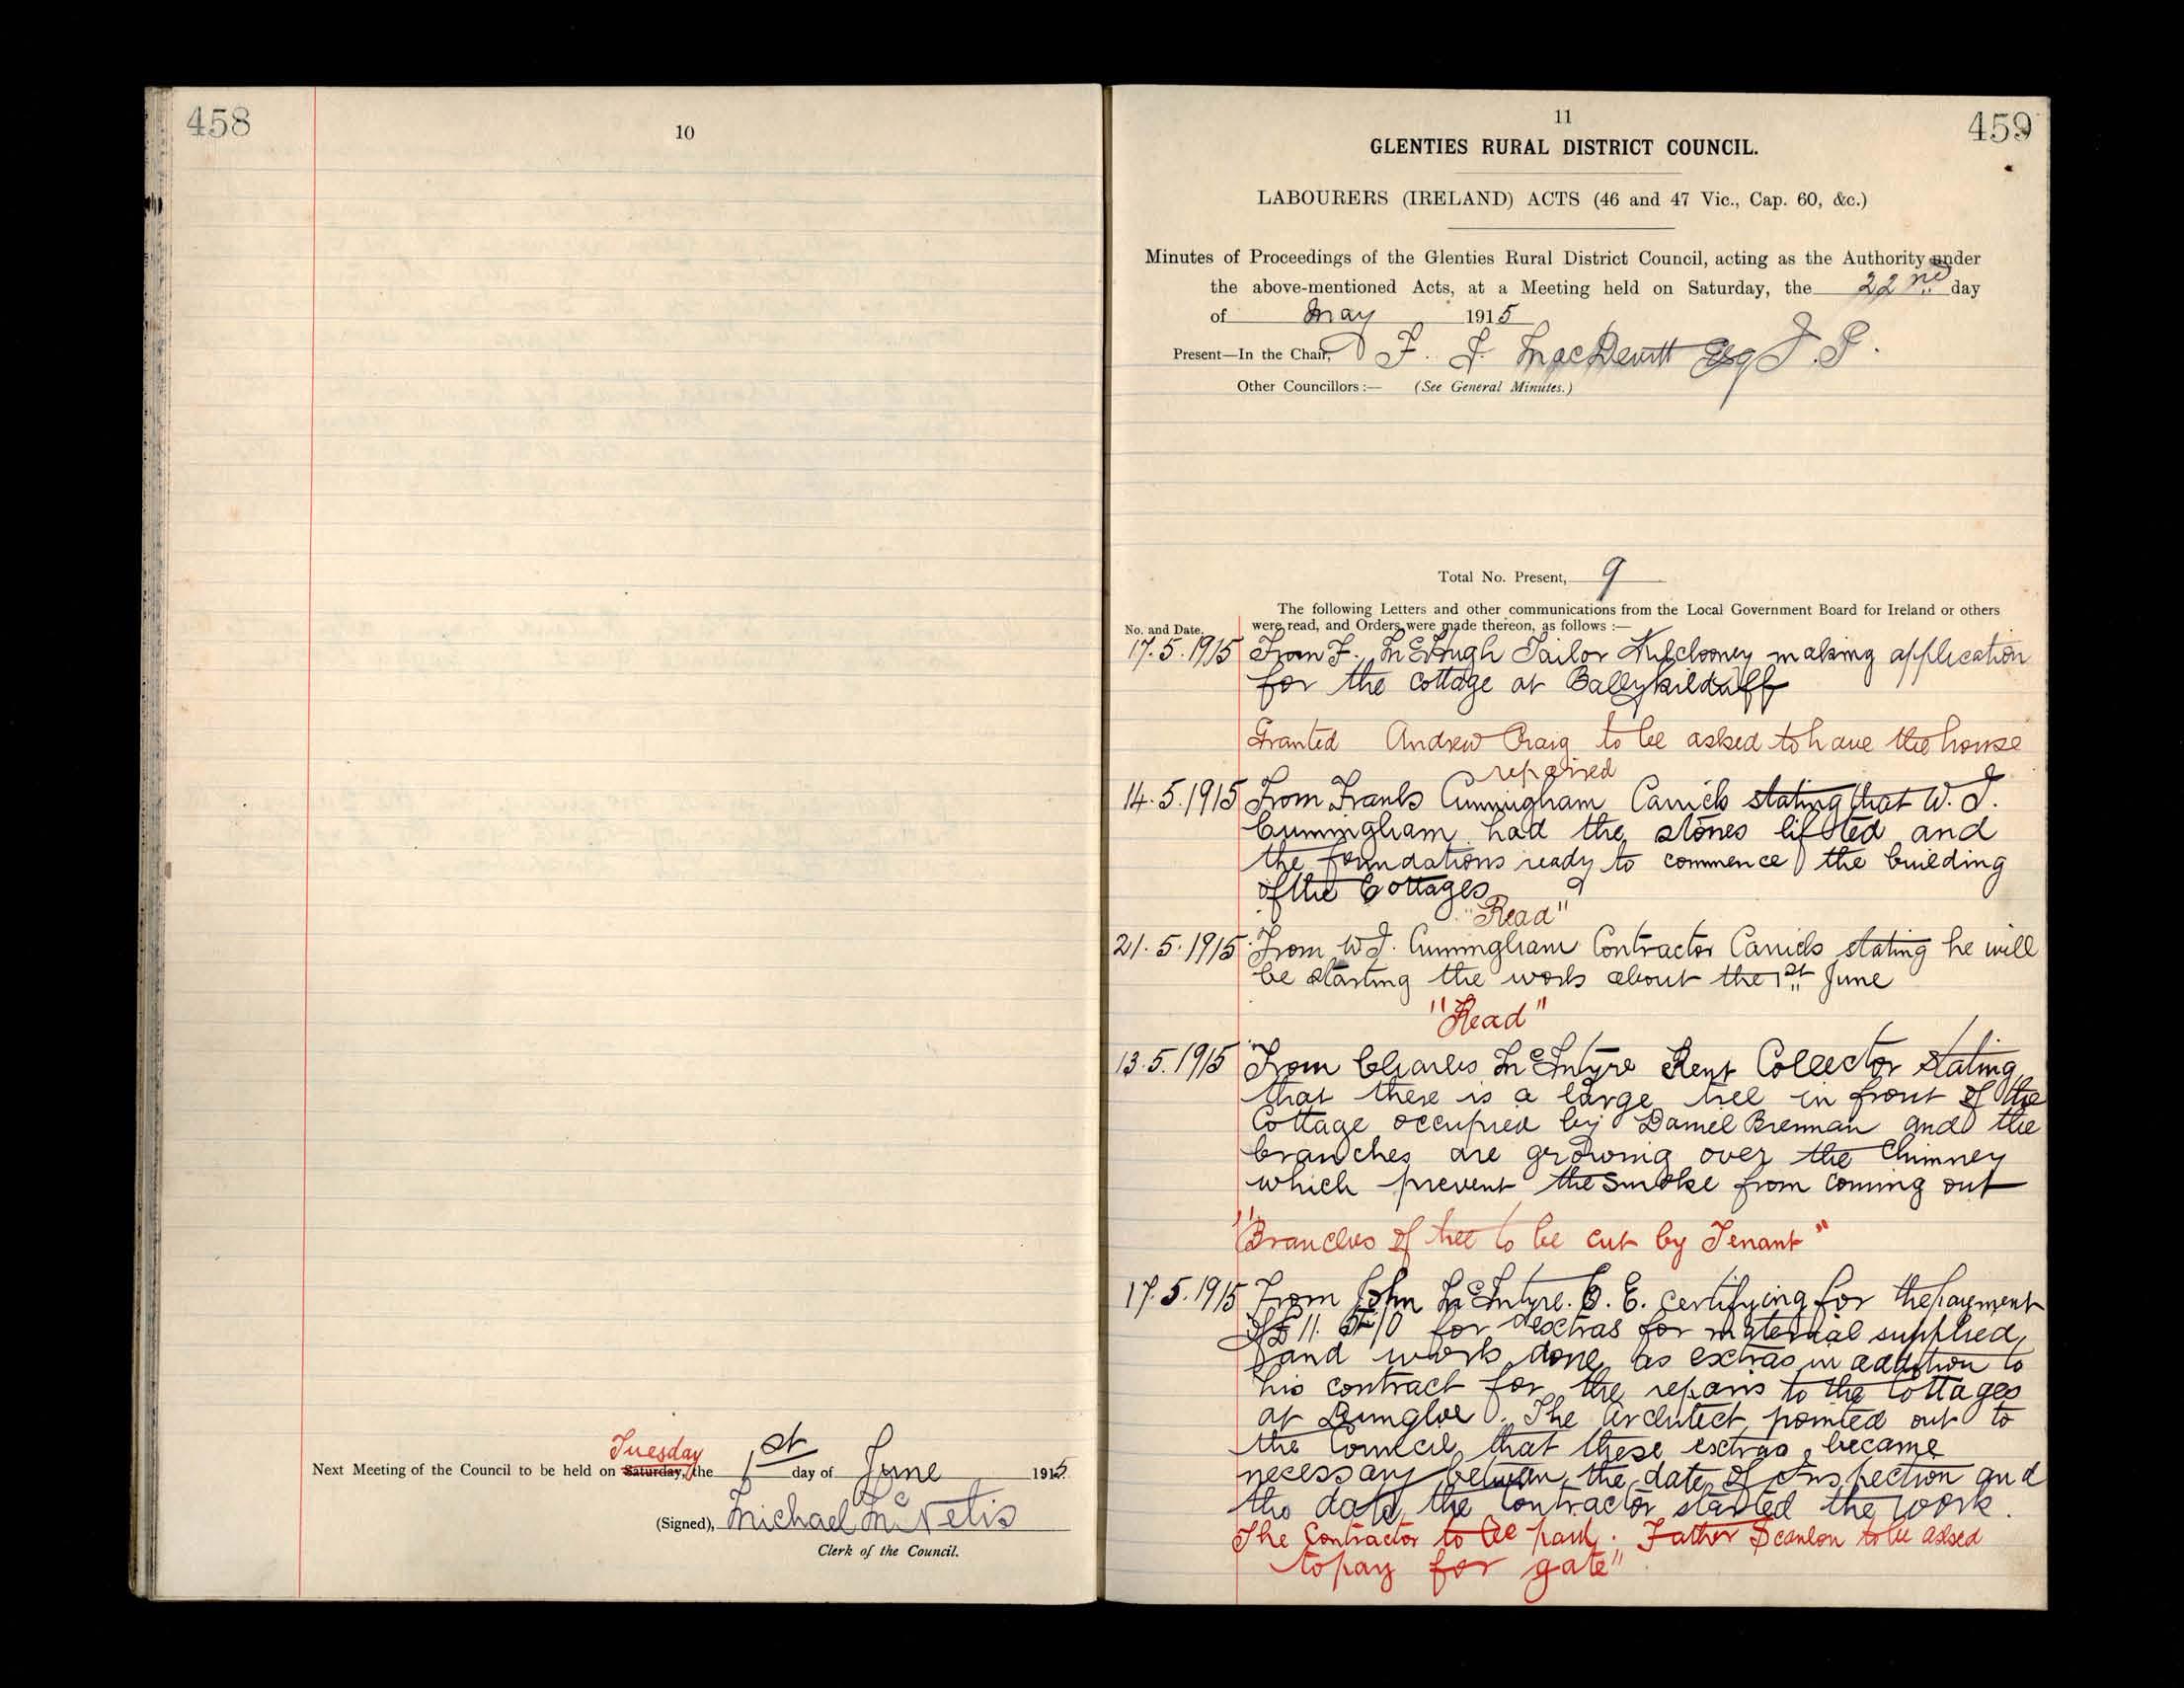 458
10
Tuesday
Next Meeting of the Council to be held on Saturday, the 1st day of June 1915
(Signed), Michael McNelis
Clerk of the Council.
459
11
GLENTIES RURAL DISTRICT COUNCIL.
LABOURERS (IRELAND) ACTS (46 and 47 Vic., Cap. 60, &c.)
Minutes of Proceedings of the Glenties Rural District Council, acting as the Authority under
the above-mentioned Acts, at a Meeting held on Saturday, the 22nd day
of May 1915
Present—In the Chair, F. J. MacDevitt Esq J. P.
Other Councillors :— (See General Minutes.)
Total No. Present, 9
The following Letters and other communications from the Local Government Board for Ireland or others
No. and Date. were read, and Orders were made thereon, as follows :—
17.5.1915 From F. Tailor Kilclooney making application
for the cottage at Ballykilduff
Granted Andrew Craig to be asked to have the house
repaired
14.5.1915 From Frank Cunningham Carrick stating that W. J.
Cunningham had the stones lifted and
the foundations ready to commence the building
of the Cottages
"Read"
21.5.1915 From W J. Cunningham Contractor Carrick stating he will
be starting the work about the 1st June
"Read"
13.5.1915 From Charles McIntyre Rent Collector stating
that there is a large tree in front of the
Cottage occupied by Daniel Brennan and the
branches are growing over the Chimney
which prevent the smoke from coming out
"Branches of tree to be cut by Tenant"
17.5.1915 From John McIntyre. C. E. certifying for the payment
of £11. for extras for material supplied,
and work done as extras in addition to
his contract for the repairs to the Cottages
at Dungloe. The Architect pointed out to
the Council that these extras became
necessary between the date of Inspection and
the date the Contractor started the work.
The Contractor to be paid. Father Scanlon to be asked
to pay for gate"